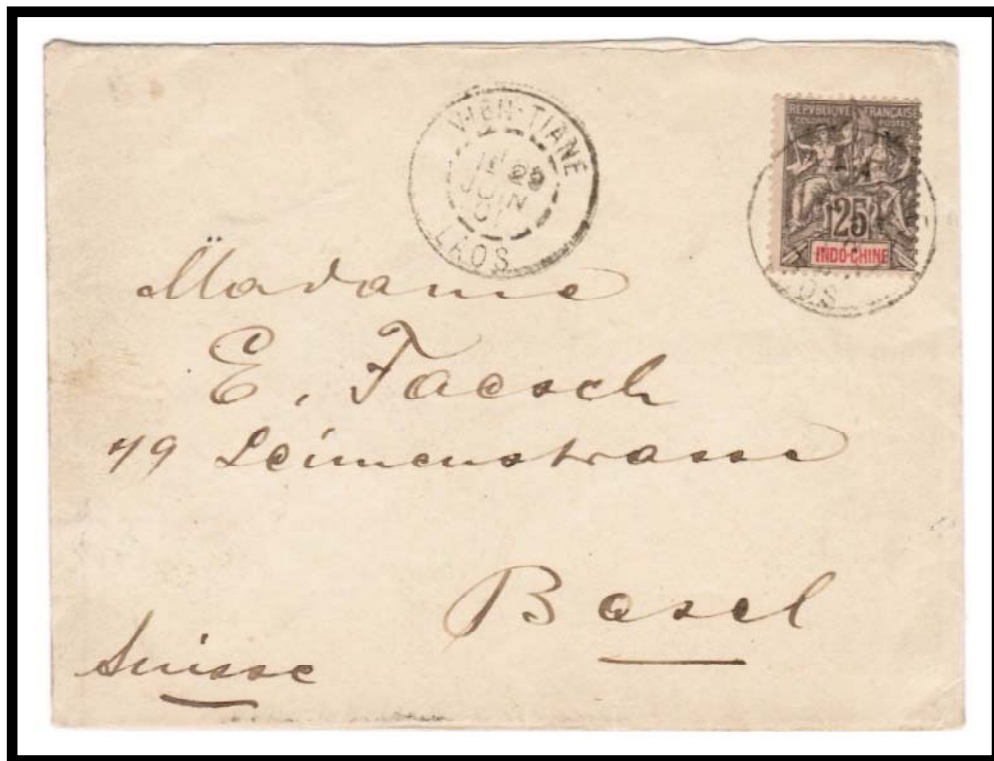 VIEN-TIANE
25
JUIN
01
LAOS
REPUBLIQUE FRANÇAISE
COLONIES POSTES
25
INDO-CHINE
OS
Madame
E. Faesch
79 Leimenstrasse
Basel
Suisse